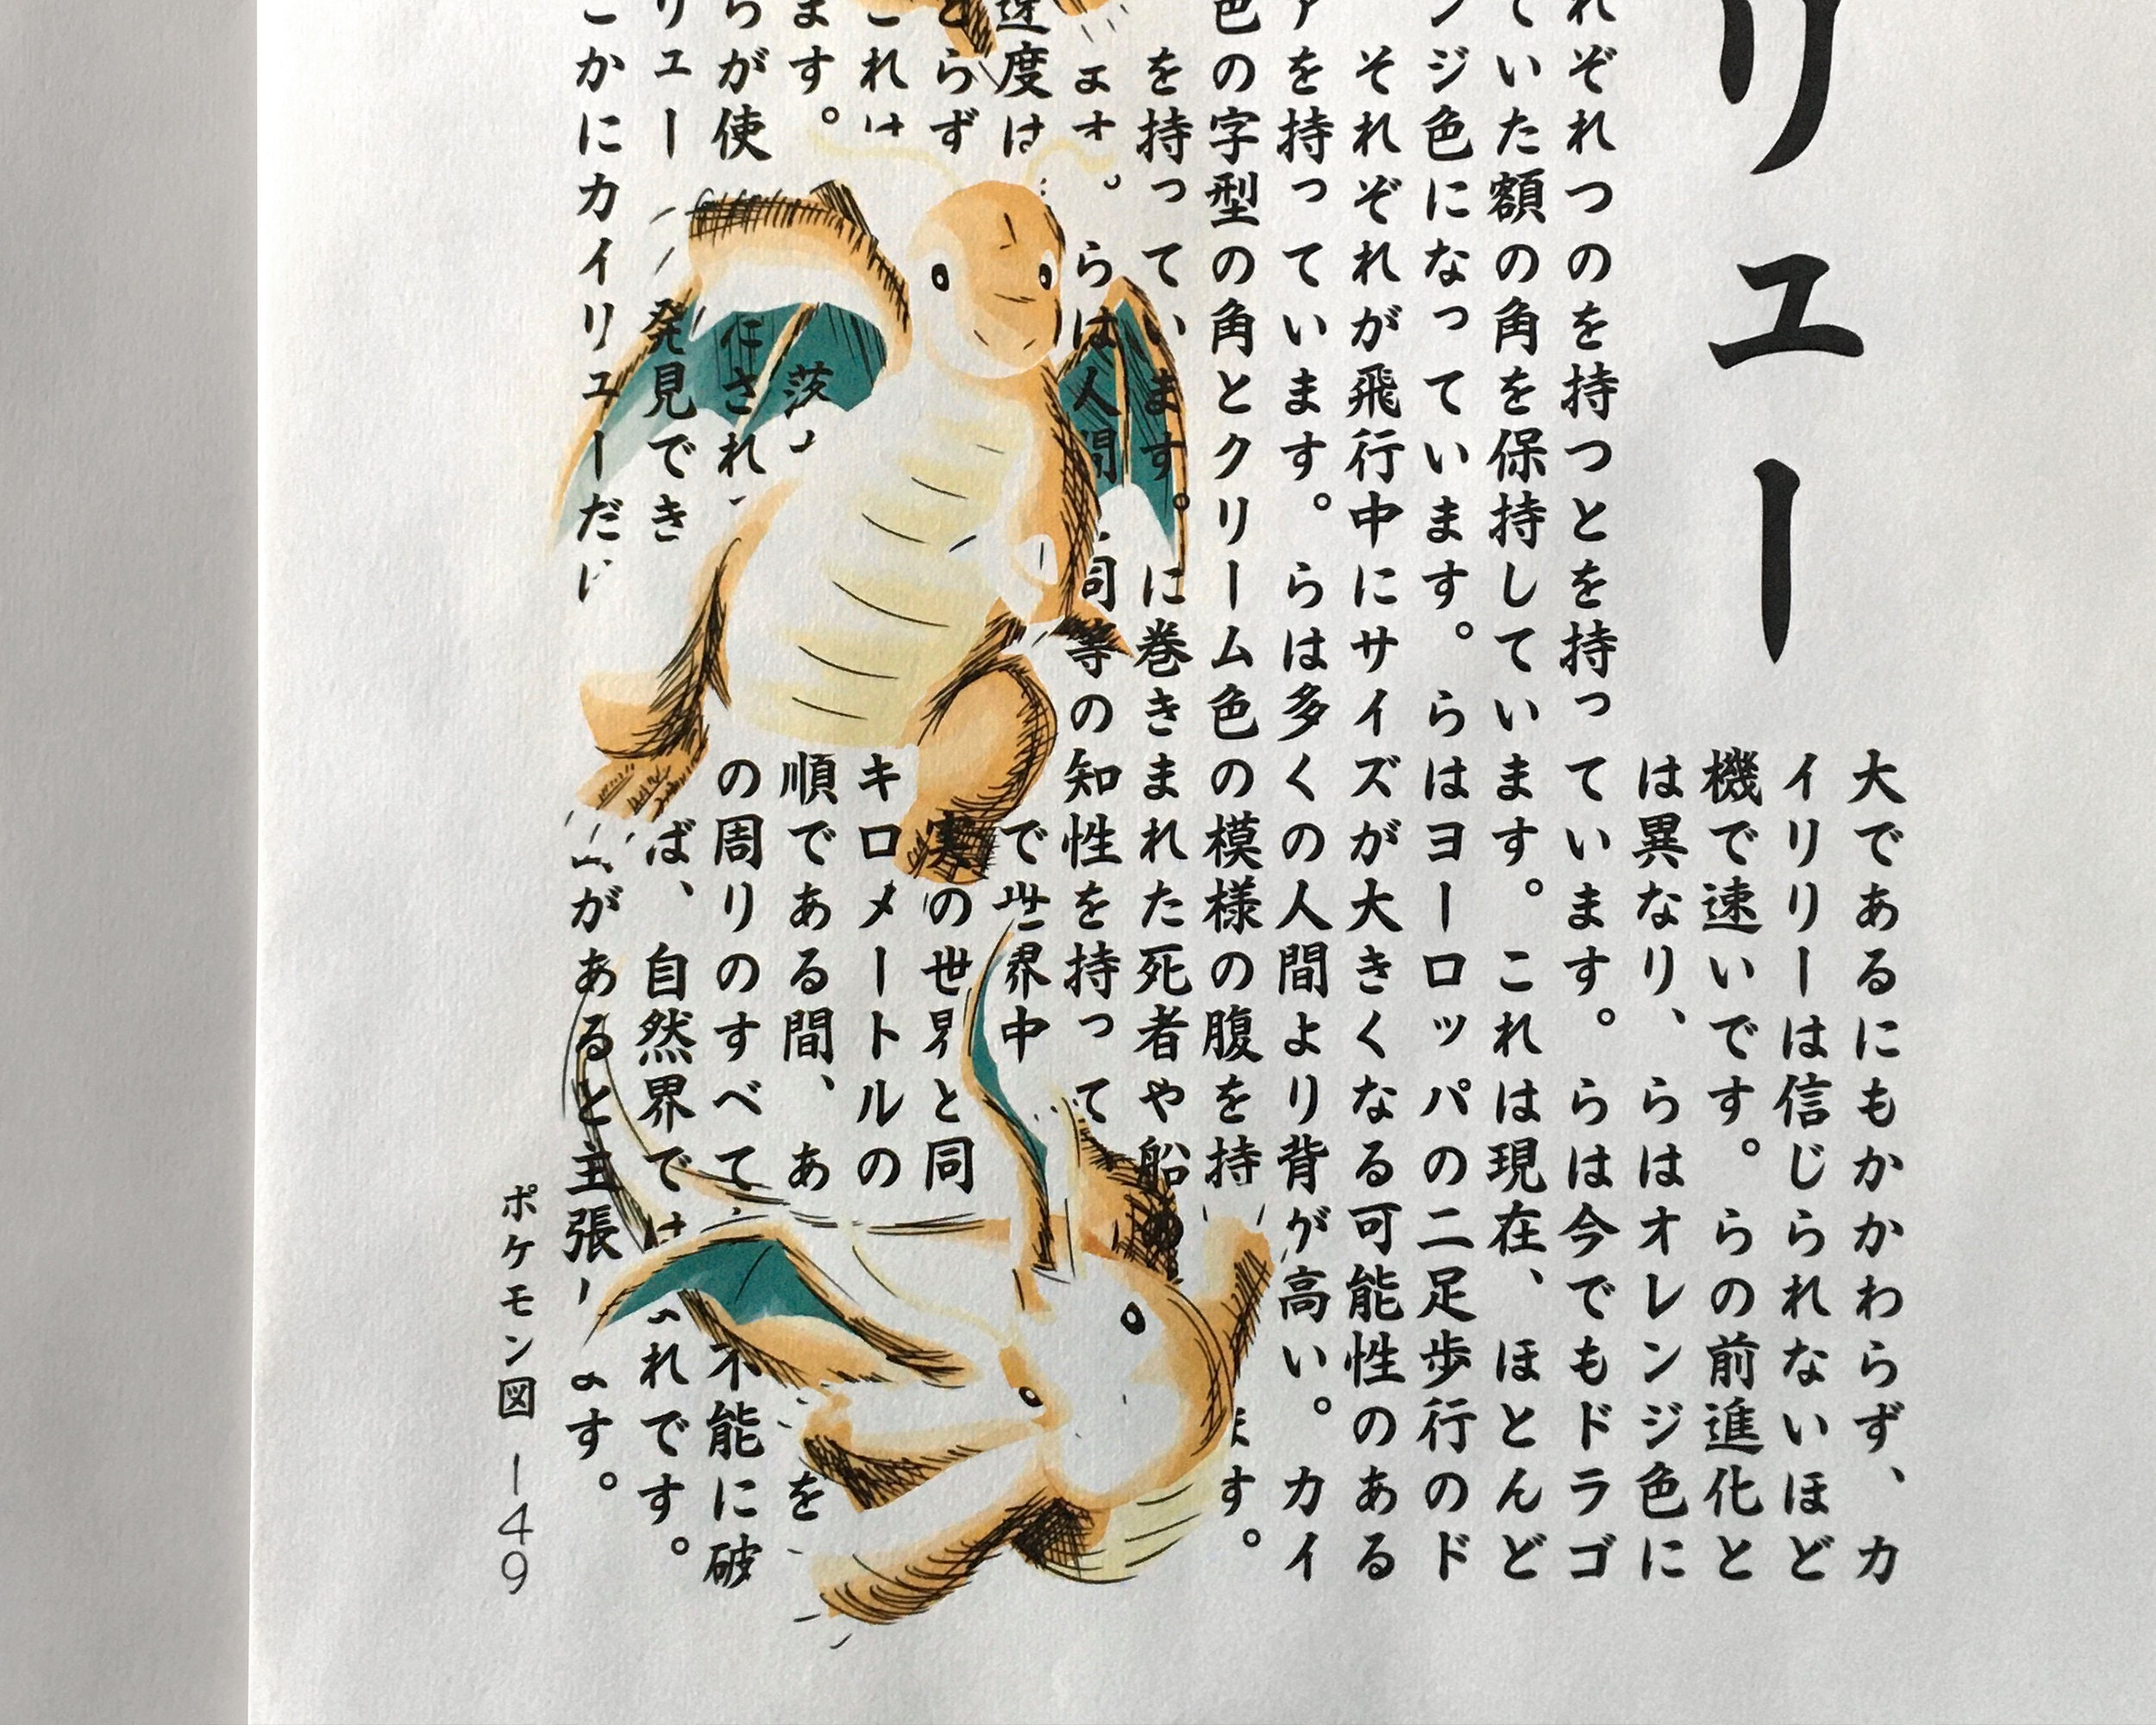 リュー
大であるにもかかわらず、カ
イリリーは信じられないほど
機で速いです。らの前進化と
は異なり、らはオレンジ色に
れぞれつのを持つとを持っています。らは今でもドラゴ
ていた額の角を保持しています。これは現在、ほとんど
ンジ色になっています。らはヨーロッパの二足歩行のド
それぞれが飛行中にサイズが大きくなる可能性のある
アを持っています。らは多くの人間より背が高い。カイ
色の字型の角とクリーム色の模様の腹を持 ます。
を持っています。に巻きまれた死者や船
ます。らは人間 同等の知性を持って
速度は で世界中
らず 実の世界と同
これは キロメートルの
ます。 茨 順である間、あ を
らが使 にされ の周りのすべて 不能に破
リュー 発見でき ば、自然界では れです。
こかにカイリューだ があると主張 ます。
ポケモン図 149